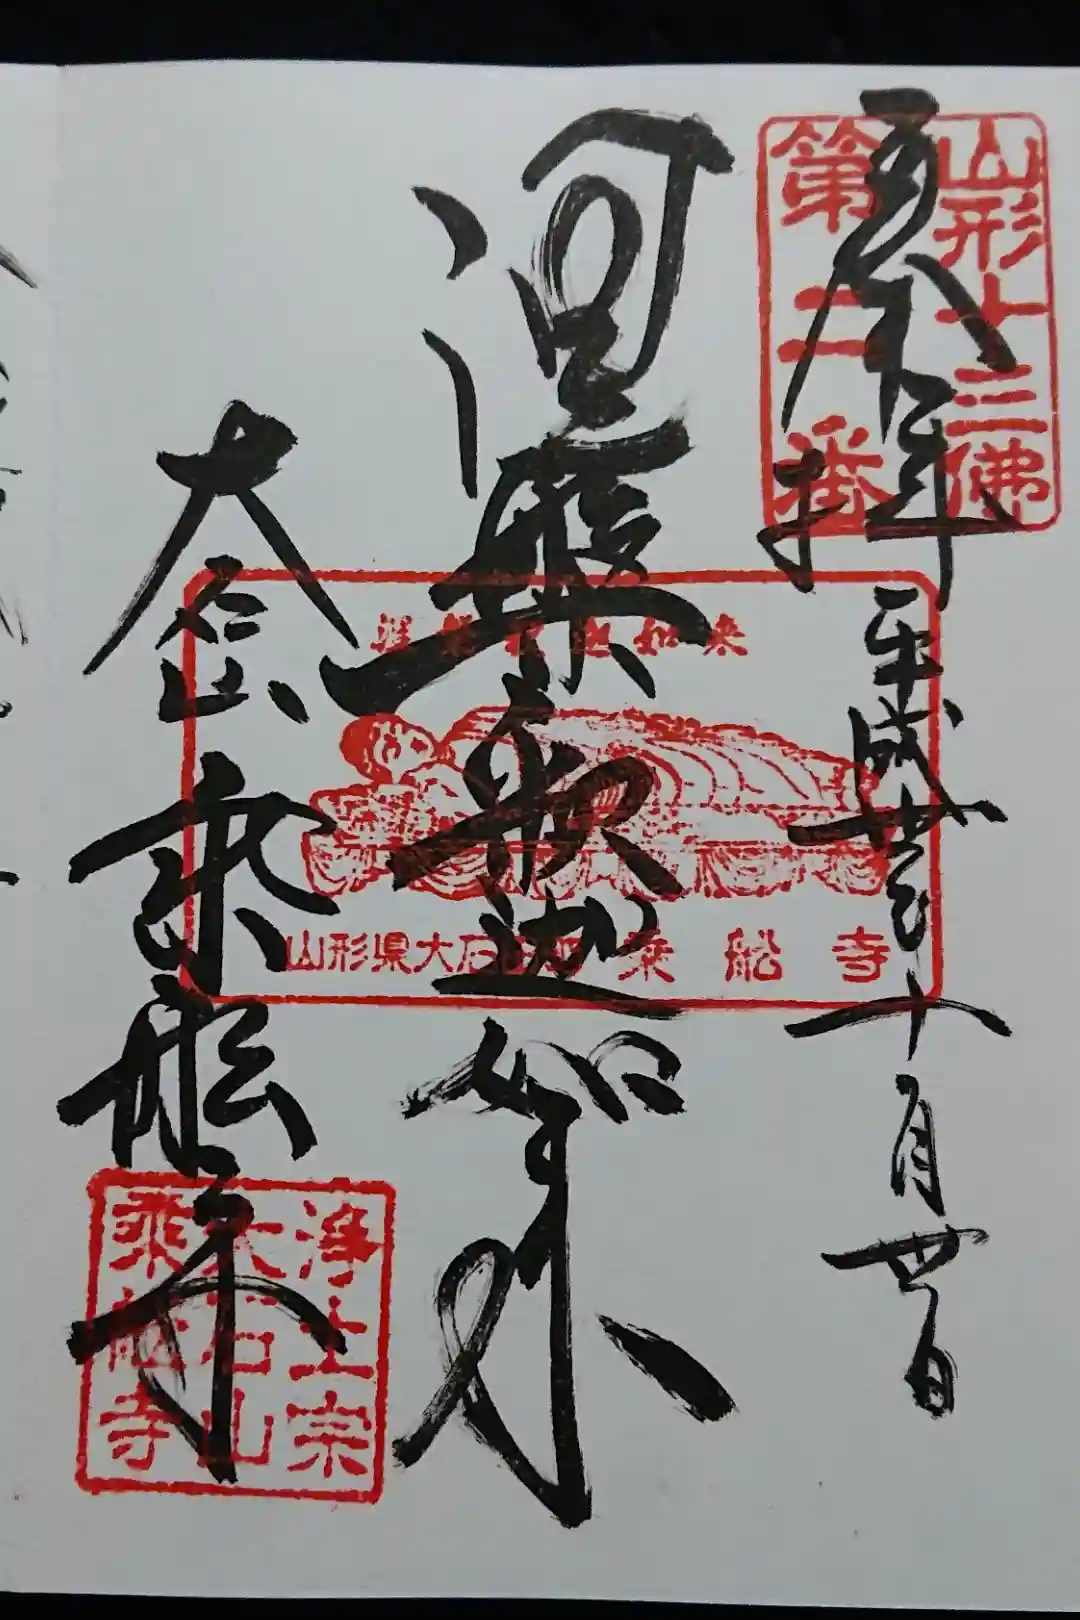 山形十三佛
第二番
拝
平成
十月
日
涅槃釈迦如来
大石山 乗舩寺
涅槃釈迦如来
山形県大石田町 乗舩寺
浄土宗
大石山
乗舩寺